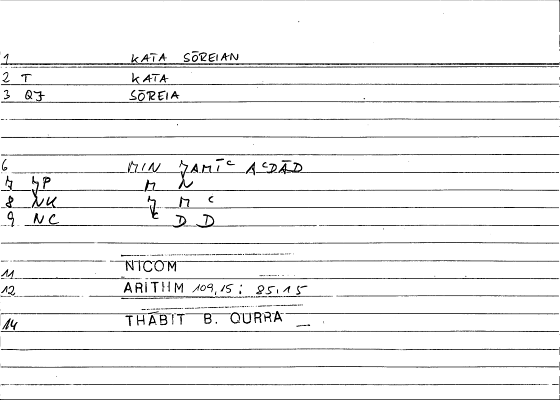 1 KATA SŌREIAN
2 T KATA
3 QJ SŌREIA
6 MIN ǦAMĪᶜ AᶜDĀD
7 M N
8 NK Ǧ M ᶜ
9 NC ᶜ D D
11 NICOM
12 ARITHM 109,15 ; 85,15
14 THĀBIT B. QURRA